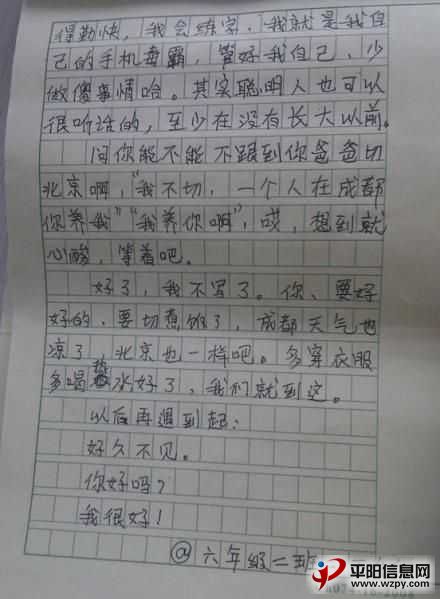 得勤快，我会练字，我就是我自
己的手机毒霸，管好我自己，少
做傻事情哈。其实聪明人也可以
很听话的，至少在没有长大以前。
问你能不能不跟到你爸爸切
北京啊，"我不切，一个人在成都
你养我""我养你啊"，哎，想到就
心酸，等着吧。
好了，我不写了。你、要好
好的，要切惹饿了，成都天气也
凉了，北京也一样吧。多穿衣服
多喝热水好了，我们就到这。
以后再遇到起：
好久不见。
你好吗？
我很好！
@六年级二班
平阳信息网
www.wzpy.com